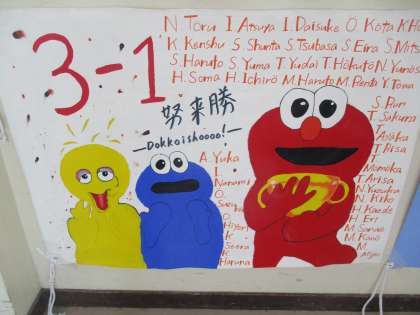 3-1
N. Toru I. Atsuya I. Daisuke O. Kota
K. Kenshu S. Shunta S. Tsubasa S. Eira S. Mits
S. Haruto S. Yuma T. Yudai T. Hokuto N. Yunos
H. Soma H. Ichiro M. Haruto M. Rento Y. Toma
努来勝
Dokkoishoooo!
A. Yuka
I.
Nanami
O.
O.
Hiyori
K.
K.
Haruna
S. Puri
T.
Sakura
T.
Ayaka
T.
Risa
T.
Momoka
T.
Arisa
N. Yuzuka
N. Kiko
H. Kaede
H. Eri
M.
M. Kano
M.